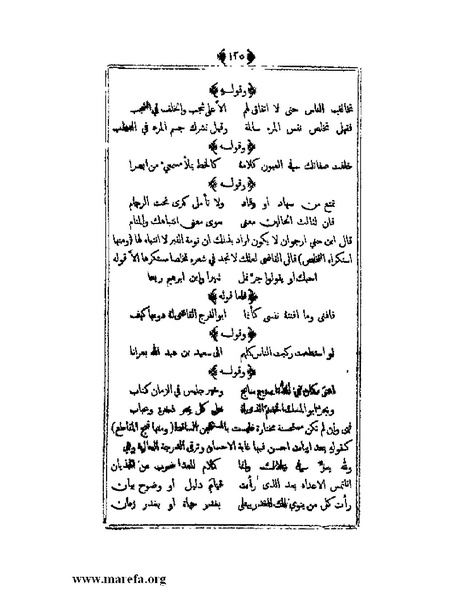 ﴿١٢٥﴾
﴿وقوله﴾
تخالف الناس حتى لا اتفاق لهم الا على شجب والخلف في الشجب
فقيل تخلص نفس المرء سالمة وقيل تشرك جسم المرء في العطب
﴿وقوله﴾
خلقت صفاتك في العيون كلامه كالخط يملأ مسمعي من ابصرا
﴿وقوله﴾
تمتع من سهاد او رقاد ولا تأمل كرى تحت الرجام
فان لثالث الحالين معنى سوى معنى انتباهك والمنام
قال ابن جني ارجو ان لا يكون اراد بذلك ان نومة القبر لا انتباه لها (ومنها
استكراه التخلص) قال القاضي لعلك لا تجد في شعره تخلصا مستكرها الا قوله
احبك او يقولوا جر نمل ثبيرا وابن ابرهيم ريعا
﴿فاما قوله﴾
فافنى وما افنته نفسي كأنما ابو الفرج القاضي له دونها كهف
﴿وقوله﴾
لو استطعت ركبت الناس كلهم الى سعيد بن عبد الله بعرانا
﴿وقوله﴾
مكان في سرج سابح وخير جليس في الزمان كتاب
وبحر ابو المسك الخضم الذي له على كل بحر زخرة وعباب
وان لم تكن مستحسنة مختارة فليست (ومنها قبح المقاطع)
كقوله بعد ابيات احسن فيها غاية الاحسان وترقى الدرجة العالية وهي
ولله سر في علاك وانما كلام العدا ضرب من الهذيان
اتلتمس الاعداء بعد الذي رأت قيام دليل او وضوح بيان
رأت كل من ينوي لك الغدر يبتلى بغدر حياة او بغدر زمان
www.marefa.org